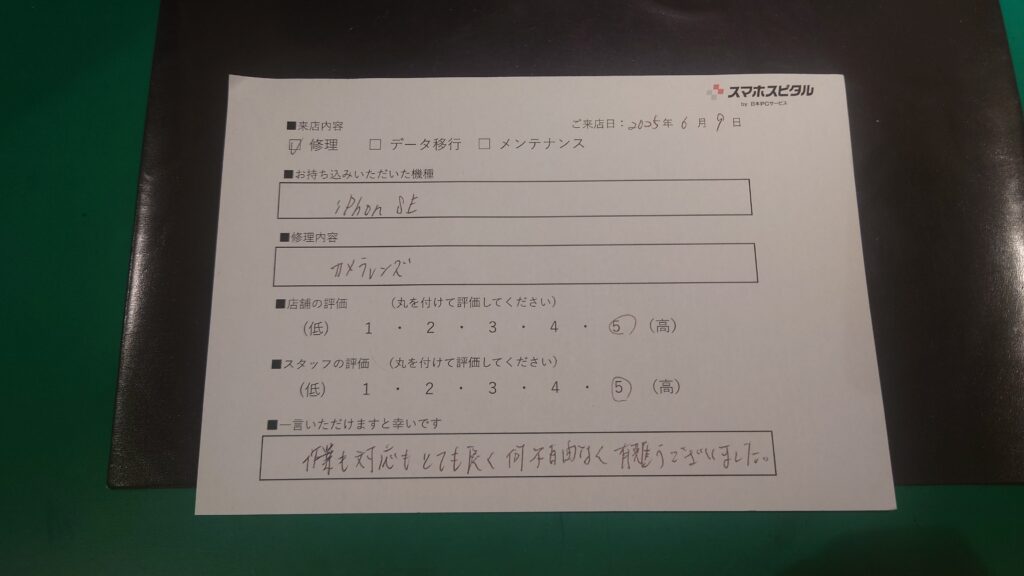 スマホスピタル
by 日本PCサービス
■来店内容
ご来店日：2025年 6月 9日
☑ 修理 □ データ移行 □ メンテナンス
■お持ち込みいただいた機種
iPhon SE
■修理内容
カメラレンズ
■店舗の評価 （丸を付けて評価してください）
（低） 1 ・ 2 ・ 3 ・ 4 ・ 5 （高）
■スタッフの評価 （丸を付けて評価してください）
（低） 1 ・ 2 ・ 3 ・ 4 ・ 5 （高）
■一言いただけますと幸いです
作業も対応もとても良く何不自由なく有難うございました。